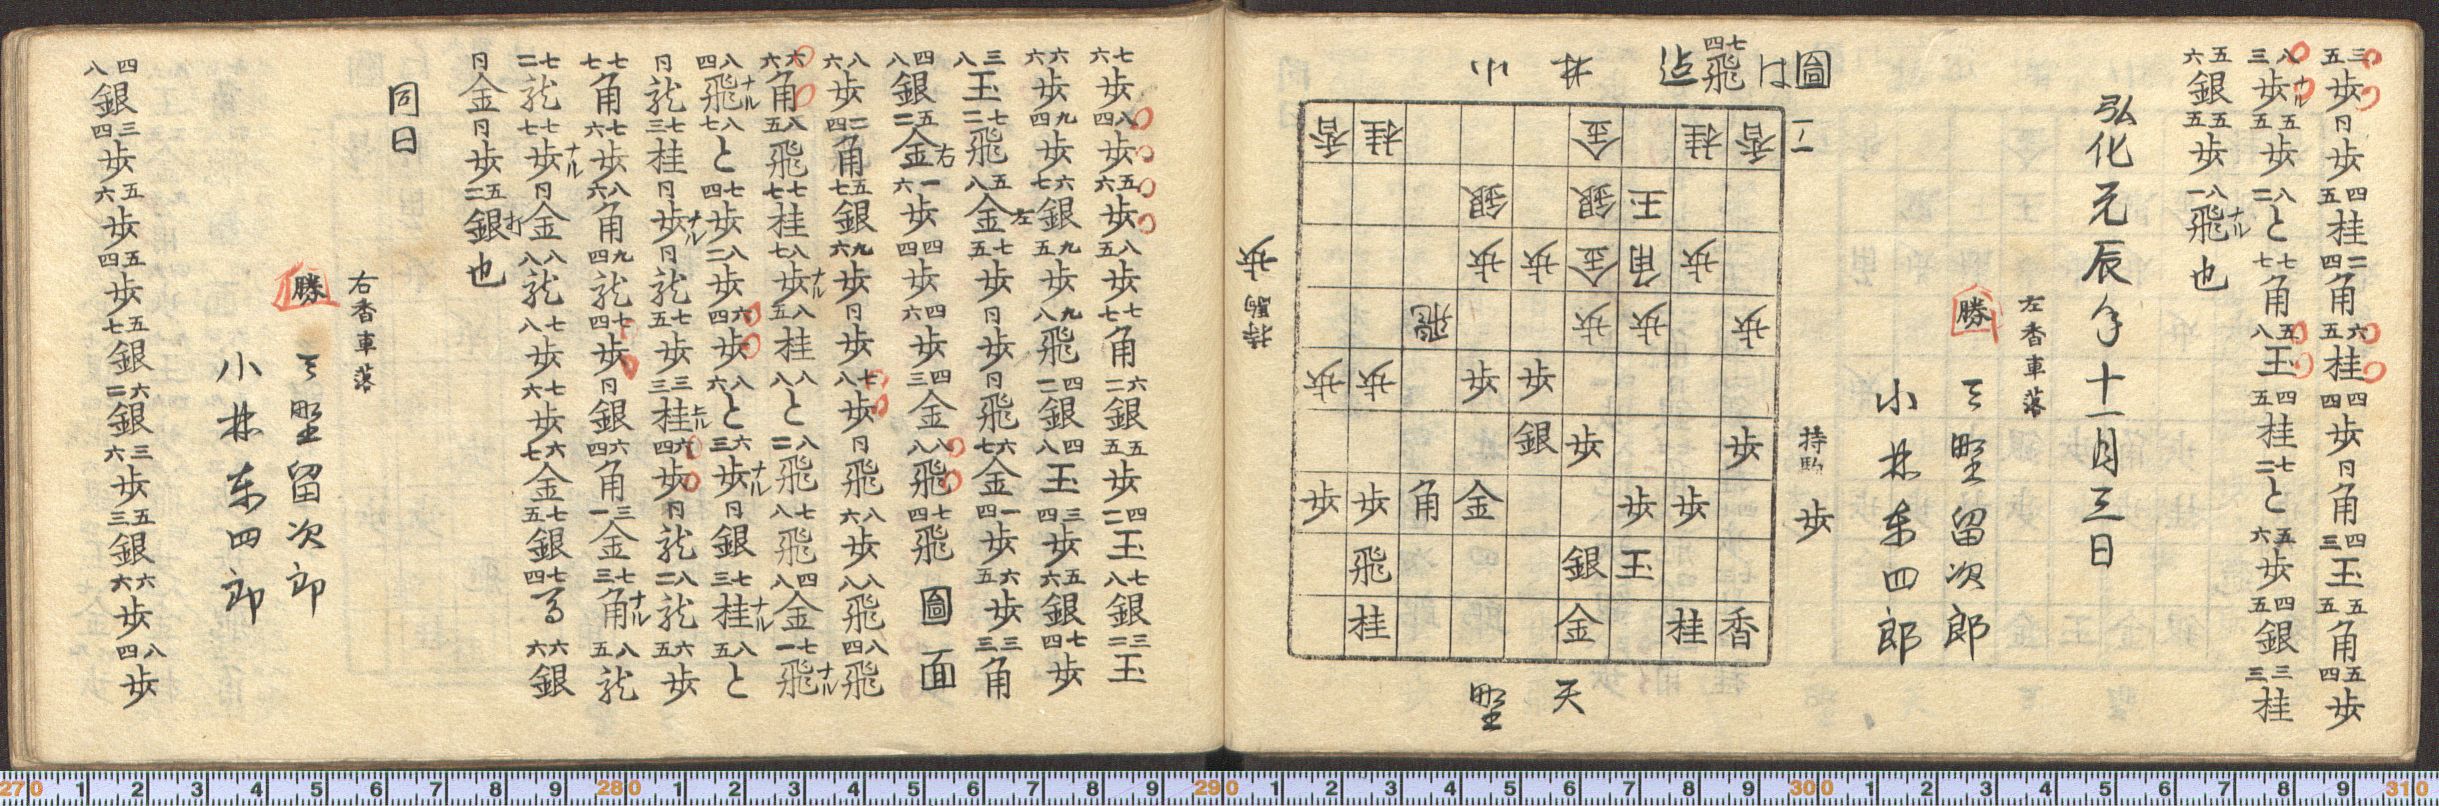 三五歩 同歩 四五桂 二四角 六五桂 四四歩 同角 四三玉 五五角 五四歩
八三歩ナル 五五歩 八二と 七七角 五八玉 四五桂 七二と 五六歩 四五銀 三三桂
五六銀 五五歩 八一飛ナル也
弘化元辰年十一月三日
左香車落
勝 天野留次郎
小林東四郎
圖は七四飛迄
小林
持駒 歩
香桂金桂香
銀銀玉
歩歩金角歩
飛歩歩歩
歩歩歩歩
銀歩歩
歩歩角金歩歩
飛銀玉
桂金桂香
天野
持駒 歩
七六歩 八四歩 五六歩 八五歩 七七角 六二銀 五五歩 四二玉 七八銀 三二玉
六六歩 九四歩 六七銀 九五歩 九八飛 四二銀 四八玉 三四歩 五六銀 七四歩
三八玉 七二飛 五八金左 七五歩 同歩 同飛 六七金 一四歩 六五歩 三三角
四八銀 五二金右 一六歩 四四歩 四六歩 四三金 八八飛 七四飛 圖面
八六歩 二四角 五七銀 九六歩 同歩 七八歩 同飛 八六歩 八八飛 八四飛
六六角 八五飛 七七桂 八七歩ナル 八五桂 八八と 八二飛 七八飛 四八金 七一飛ナル
八四飛ナル 八七と 七四歩 八二歩 六四歩 八六と 六三歩ナル 同銀 七三桂ナル 八五と
同龍 七三桂 同歩ナル 同龍 七五歩 三三桂上ル 六四歩 同龍 八二龍 六五歩
七七角 七六歩 八六角 九四龍 七四歩 同銀 六四角 三一金 七三角ナル 八五龍
七二龍 七七歩ナル 同金 八八龍 七八歩 七六歩 六七金 七五銀 七四馬 六六銀
同金 同歩 五二銀打也
同日
右香車落
勝 天野留次郎
小林東四郎
四八銀 三四歩 五六歩 五四歩 五七銀 六二銀 三六歩 五三銀 六六歩 八四歩
270 1 2 3 4 5 6 7 8 9 280 1 2 3 4 5 6 7 8 9 290 1 2 3 4 5 6 7 8 9 300 1 2 3 4 5 6 7 8 9 310